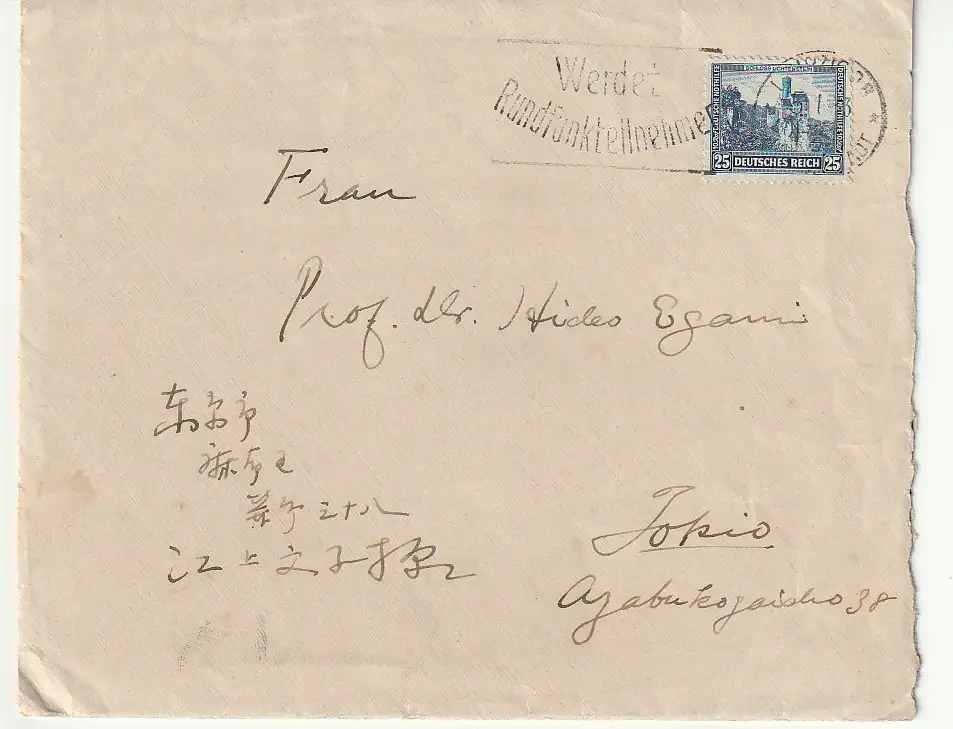 Werdet
Rundfunkteilnehmer
SCHLOSS LICHTENSTEIN
DEUTSCHE NOTHILFE
25 DEUTSCHES REICH 25
Frau
Prof. Dr. Hideo Egami
東京市
麻布区
三十八
江上文子様
Tokio
Azabu Kogaicho 38